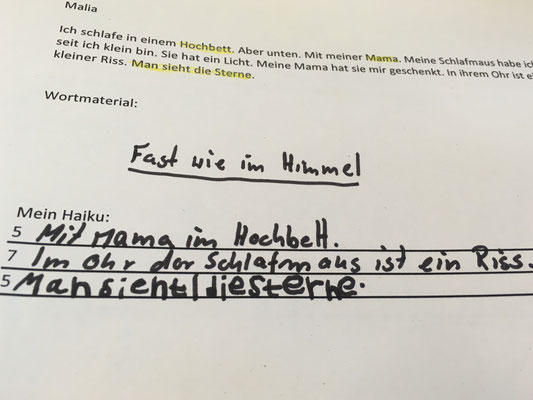 Malia
Ich schlafe in einem Hochbett. Aber unten. Mit meiner Mama. Meine Schlafmaus habe ich
seit ich klein bin. Sie hat ein Licht. Meine Mama hat sie mir geschenkt. In ihrem Ohr ist
kleiner Riss. Man sieht die Sterne.
Wortmaterial:
Fast wie im Himmel
Mein Haiku:
5 Mit Mama im Hochbett.
7 Im Ohr der Schlafmaus ist ein Riss.
5 Man sieht die Sterne.